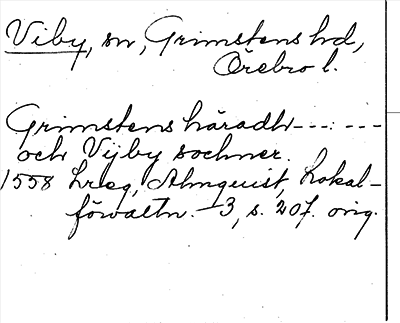 Viby, sn, Grimstens hd,
Örebro l.
Grimstens häradh---:---
och Vijby sochner.
1558 Lreg, Almquist, Lokal-
förvaltn. 3, s. 207. orig.